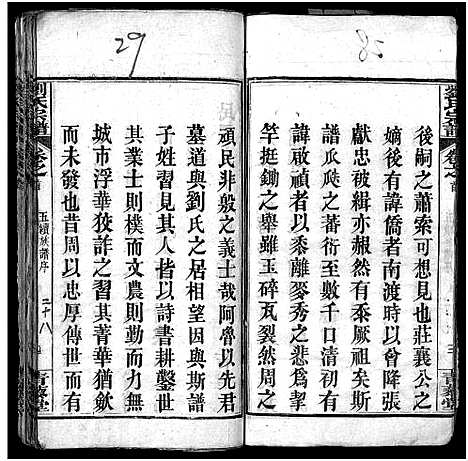 85
後嗣之蕭索可想見也莊襄公之
嫡後有諱僑者南渡時以降張
獻忠被緝亦赧然有忝厥祖矣斯
譜瓜瓞之蕃衍至數千口清初有
諱啟禎者以黍離麥秀之悲爲挐
竿挺鋤之舉雖玉碎瓦裂然而
29
頑民非殷之義士哉阿魯以先君
墓道與劉氏之居相望因與斯譜
子姓習見其人皆詩書耕鑿世
其業士則樸而文農則勤而力無
城市浮華狡詐之習其菁華猶歛
而未發也昔周以忠厚傳世而有
劉氏宗譜
卷之首
五續族譜序
三十八
青藜堂